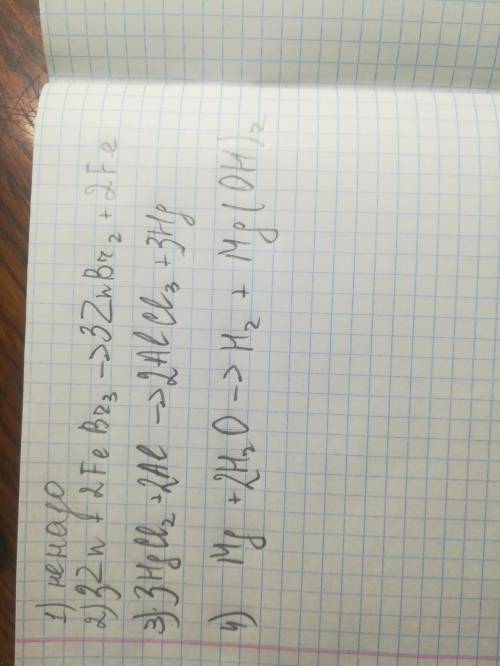 1) ненадо
2) 3Zn + 2FeBr₃ → 3ZnBr₂ + 2Fe
3) 3HgCl₂ + 2Al → 2AlCl₃ + 3Hg
4) Mg + 2H₂O → H₂ + Mg(OH)₂